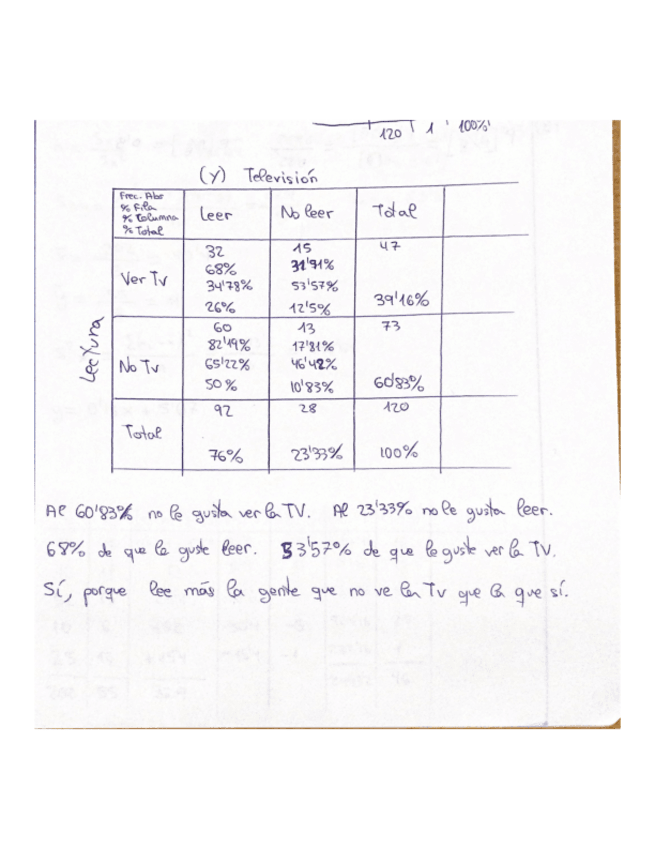 120 1 100%
(Y) Televisión
Frec. Abs
% Fila
% Columna
% Total
Leer No leer Total
Lectura
Ver Tv
32 15 47
68% 31'91%
34'78% 53'57%
26% 12'5% 39'16%
No Tv
60 13 73
82'19% 17'81%
65'22% 46'42%
50% 10'83% 60'83%
Total
92 28 120
76% 23'33% 100%
Al 60'83% no le gusta ver la TV. Al 23'33% no le gusta leer.
68% de que le guste leer. 53'57% de que le guste ver la TV.
Sí, porque lee más la gente que no ve la Tv que la que sí.